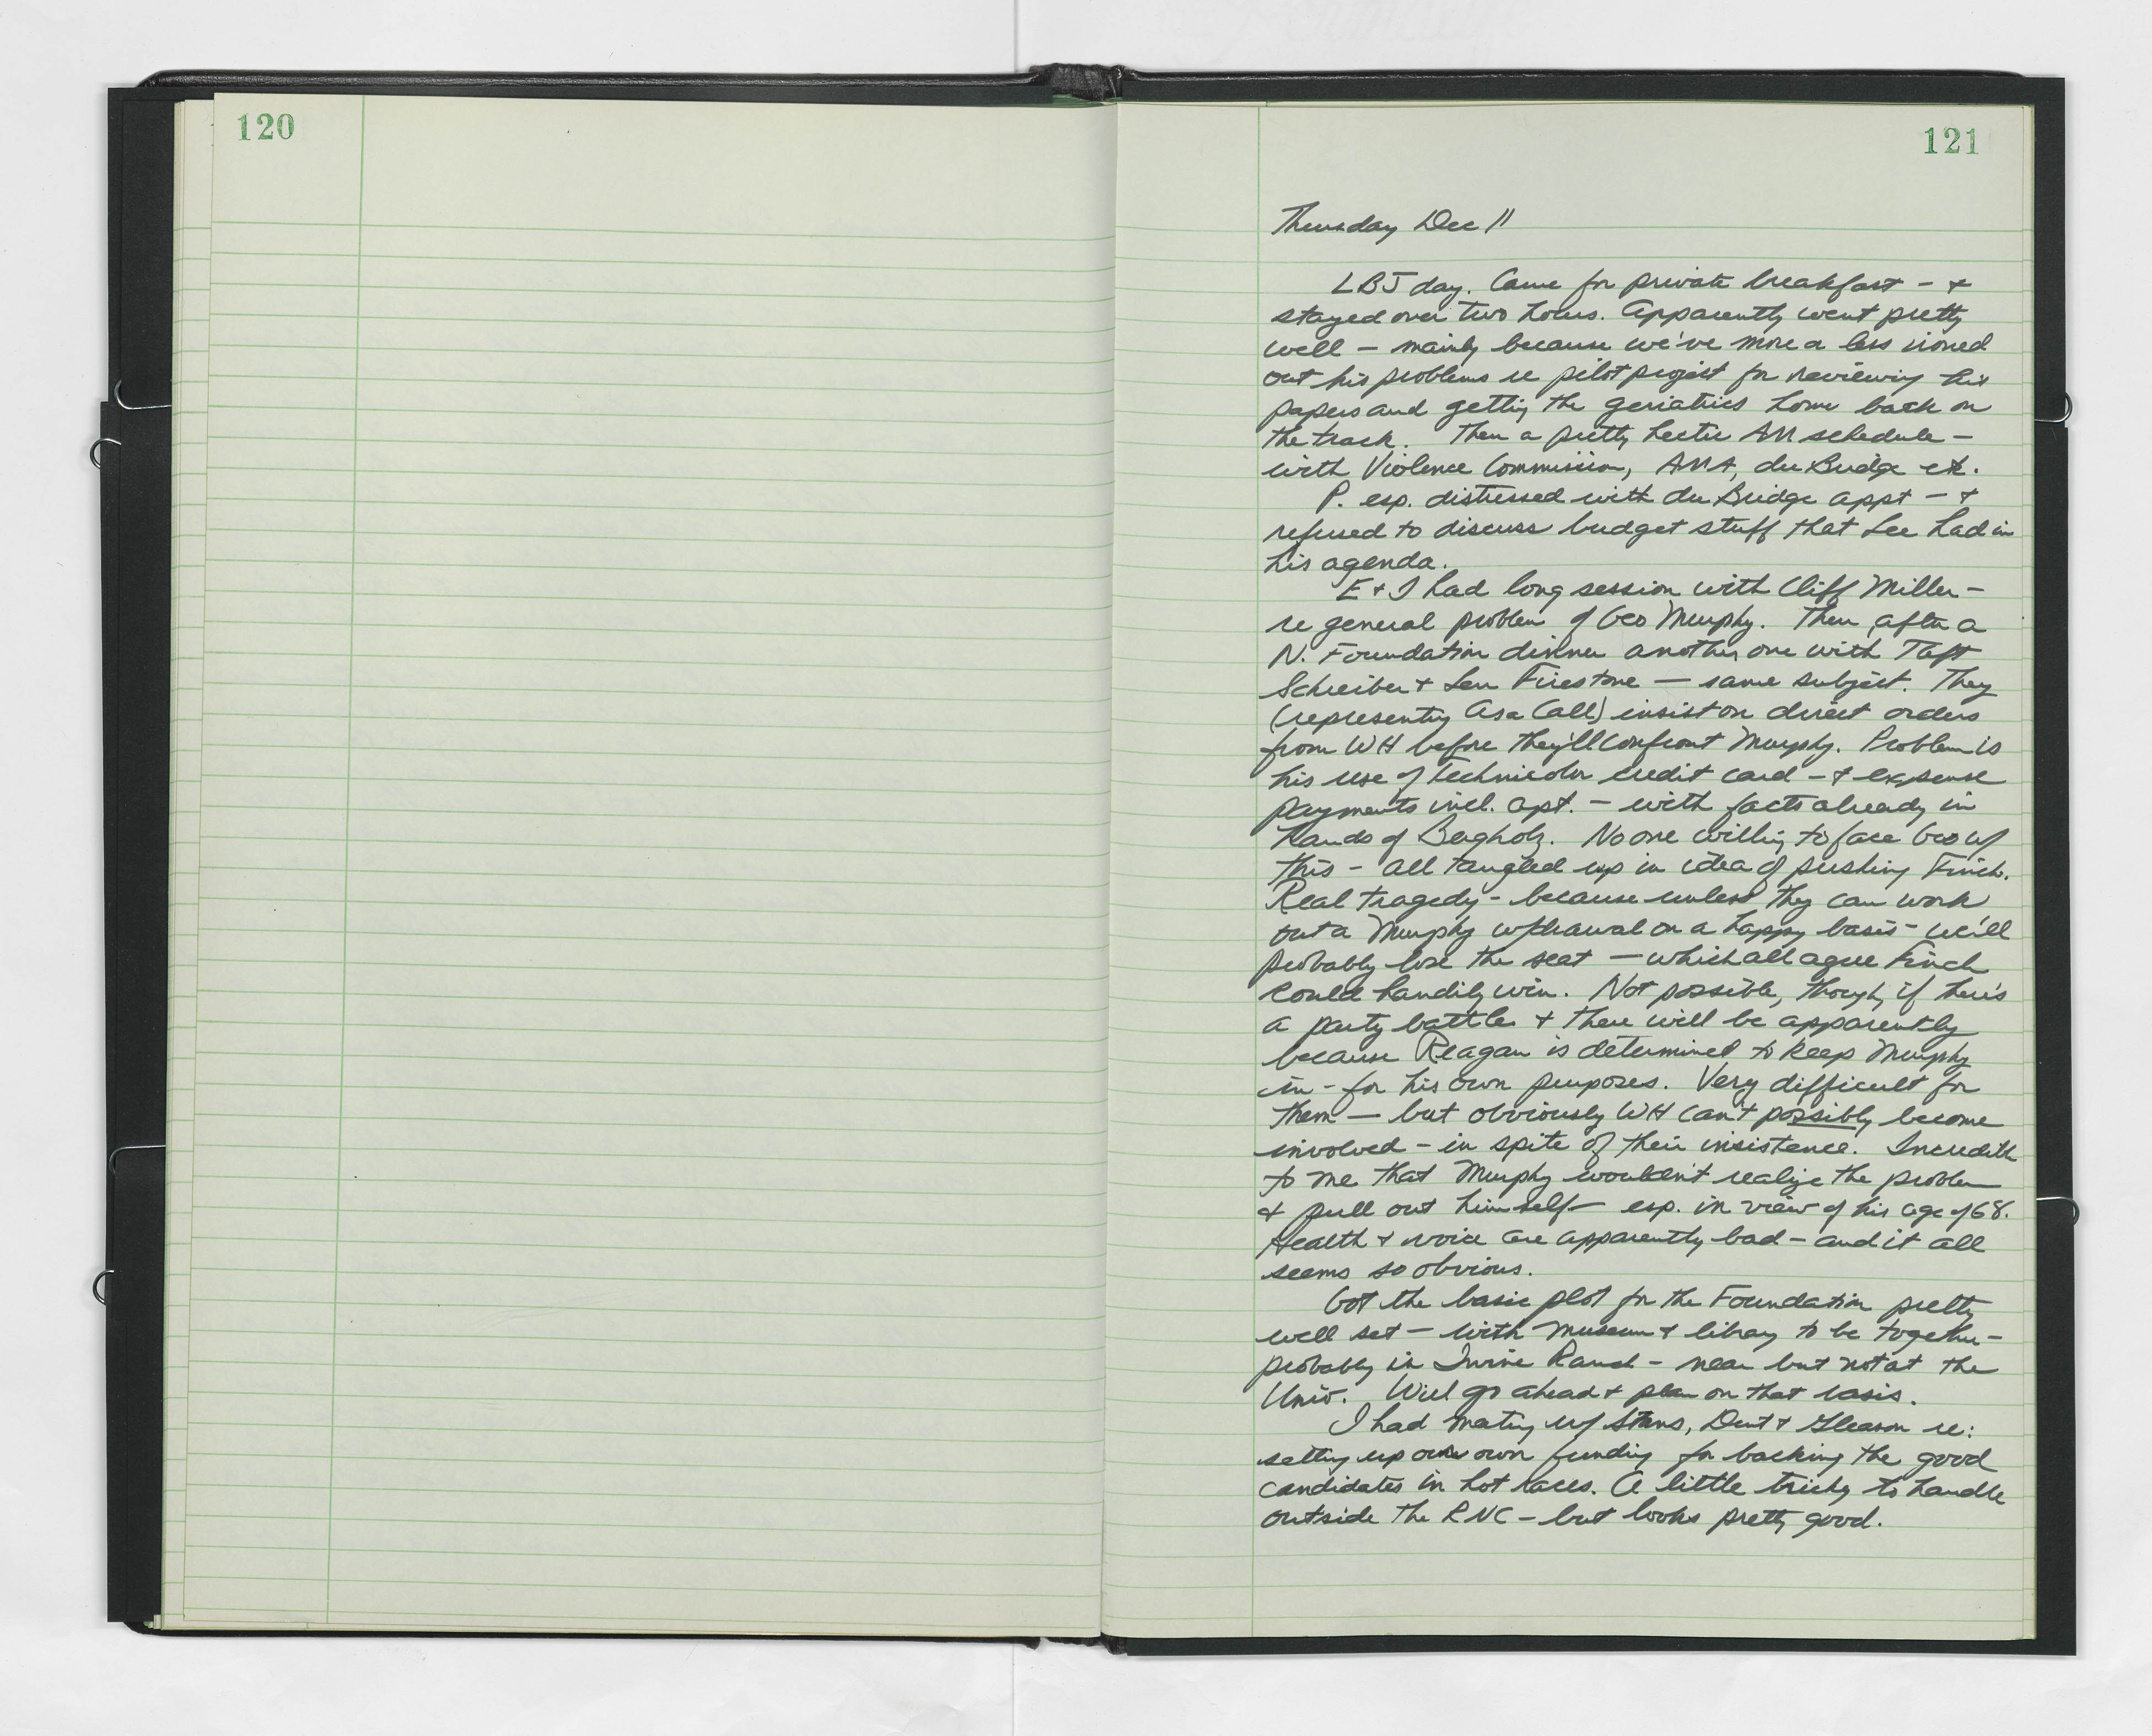 120
121
Thursday Dec 11
LBJ day. Came for private breakfast - &
stayed over two hours. Apparently went pretty
well - mainly because we've more or less ironed
out his problems re pilot project for reviewing his
papers and getting the geriatrics home back on
the track. Then a pretty hectic AM schedule -
with Violence Commission, AMA, du Bridge etc.
P. esp. distressed with du Bridge appt - &
refused to discuss budget stuff that Lee had in
his agenda.
E & I had long session with Cliff Miller -
re general problem of Geo Murphy. Then, after a
N. Foundation dinner another one with Taft
Schreiber & Len Firestone - same subject. They
(representing Asa Call) insist on direct orders
from WH before they'll confront Murphy. Problem is
his use of Technicolor credit card - & expense
payments incl. apt. - with facts already in
hands of Bergholz. No one willing to face Geo w/
this - all tangled up in idea of pushing Finch.
Real tragedy - because unless they can work
out a Murphy w/drawal on a happy basis - we'll
probably lose the seat - which all agree Finch
could handily win. Not possible, though, if there's
a party battle & there will be apparently
because Reagan is determined to keep Murphy
in - for his own purposes. Very difficult for
them - but obviously WH can't possibly become
involved - in spite of their insistence. Incredible
to me that Murphy wouldn't realize the problem
& pull out himself - esp. in view of his age of 68.
Health & voice are apparently bad - and it all
seems so obvious.
Got the basic plot for the Foundation pretty
well set - with museum & library to be together -
probably in Irvine Ranch - near but not at the
Univ. Will go ahead & plan on that basis.
I had meeting w/ Stans, Dent & Gleason re:
setting up our own funding for backing the good
candidates in hot races. A little tricky to handle
outside the RNC - but looks pretty good.